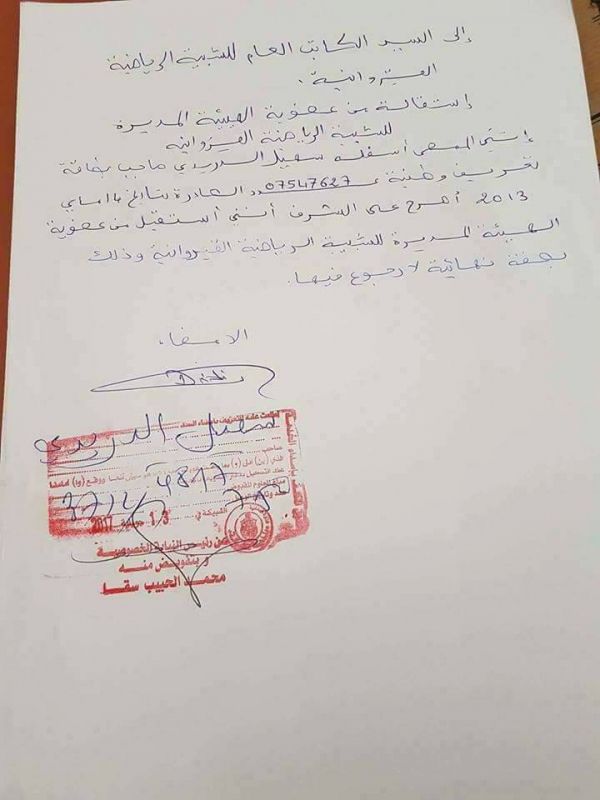 إلى السيد الكاتب العام للشبيبة الرياضية
القيروانية.
إستقالة من عضوية الهيئة المديرة
للشبيبة الرياضية القيروانية
إنني الممضي أسفله سهيل الدريدي صاحب بطاقة
تعريف وطنية عـــدد 07547627 الصادرة بتاريخ 14 ماي
2013 أصرح على الشرف أنني أستقيل من عضوية
الهيئة المديرة للشبيبة الرياضية القيروانية وذلك
بصفة نهائية لا رجوع فيها.
الامضاء
سهيل الدريدي
13 جويلية 2017
عن رئيس النيابة الخصوصية
و بتفويض منه
محمد الحبيب سقا